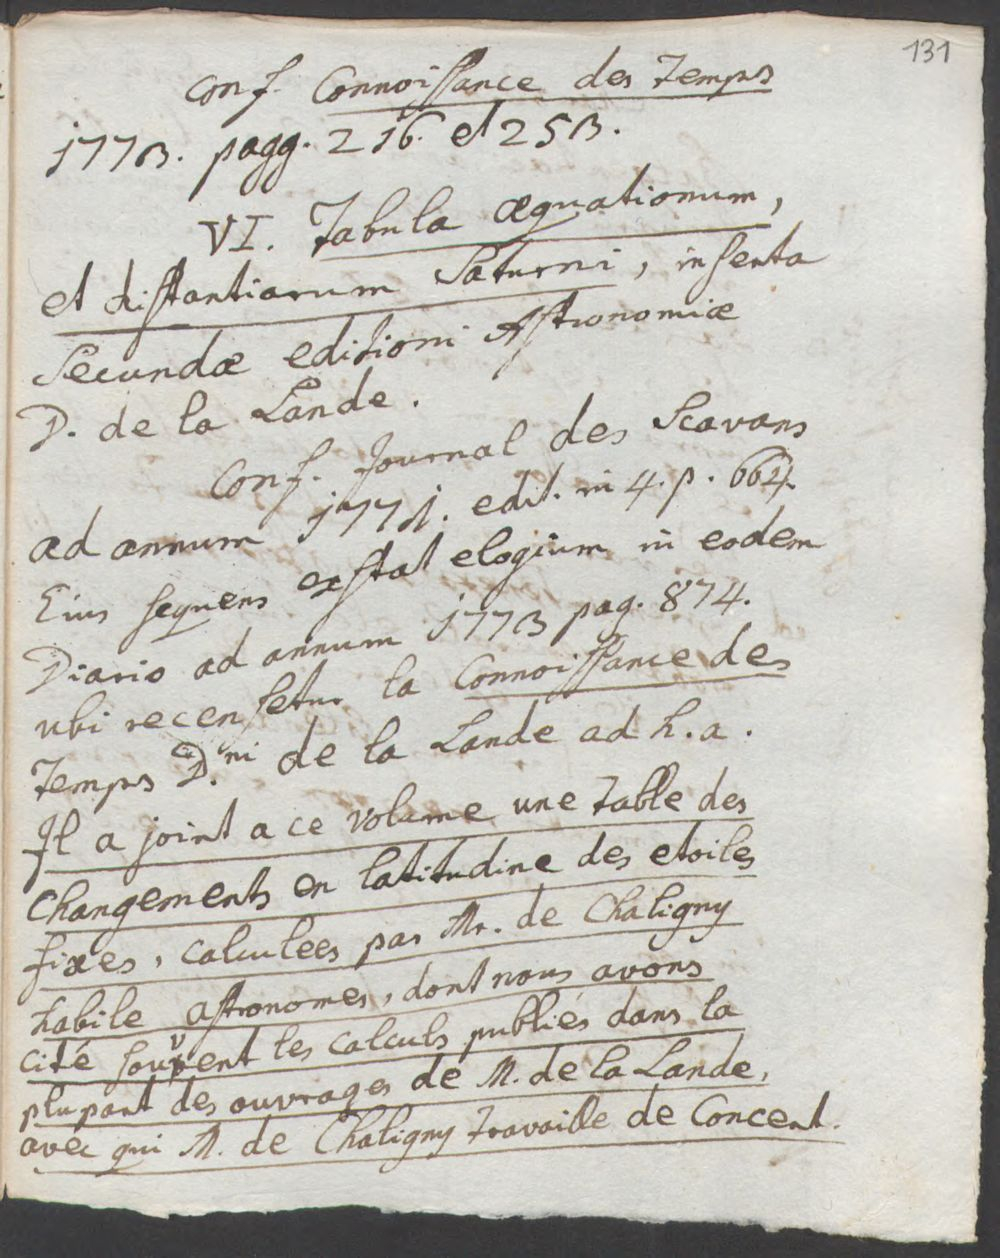 131
conf. Connoissance des Temps
1773. pagg. 216. et 253.
VI. Tabula æquationum,
et distantiarum Saturni, inserta
Secundæ editioni Astronomiæ
D. de la Lande.
Conf. Journal des Scavans
ad annum 1771. edit. in 4. p. 664.
Eius sequens exstat elogium in eodem
Diario ad annum 1773 pag. 874.
ubi recensetur la Connoissance des
Temps D.ni de la Lande ad h. a.
Il a joint a ce volume une Table des
Changements en latitudine des etoiles
fixes, calculees par Mr. de Chaligny
habile astronomes, dont nous avons
cité souvent les calculs publiés dans la
plupart des ouvrages de M. de la Lande,
avec qui M. de Chaligny travaille de Concert.